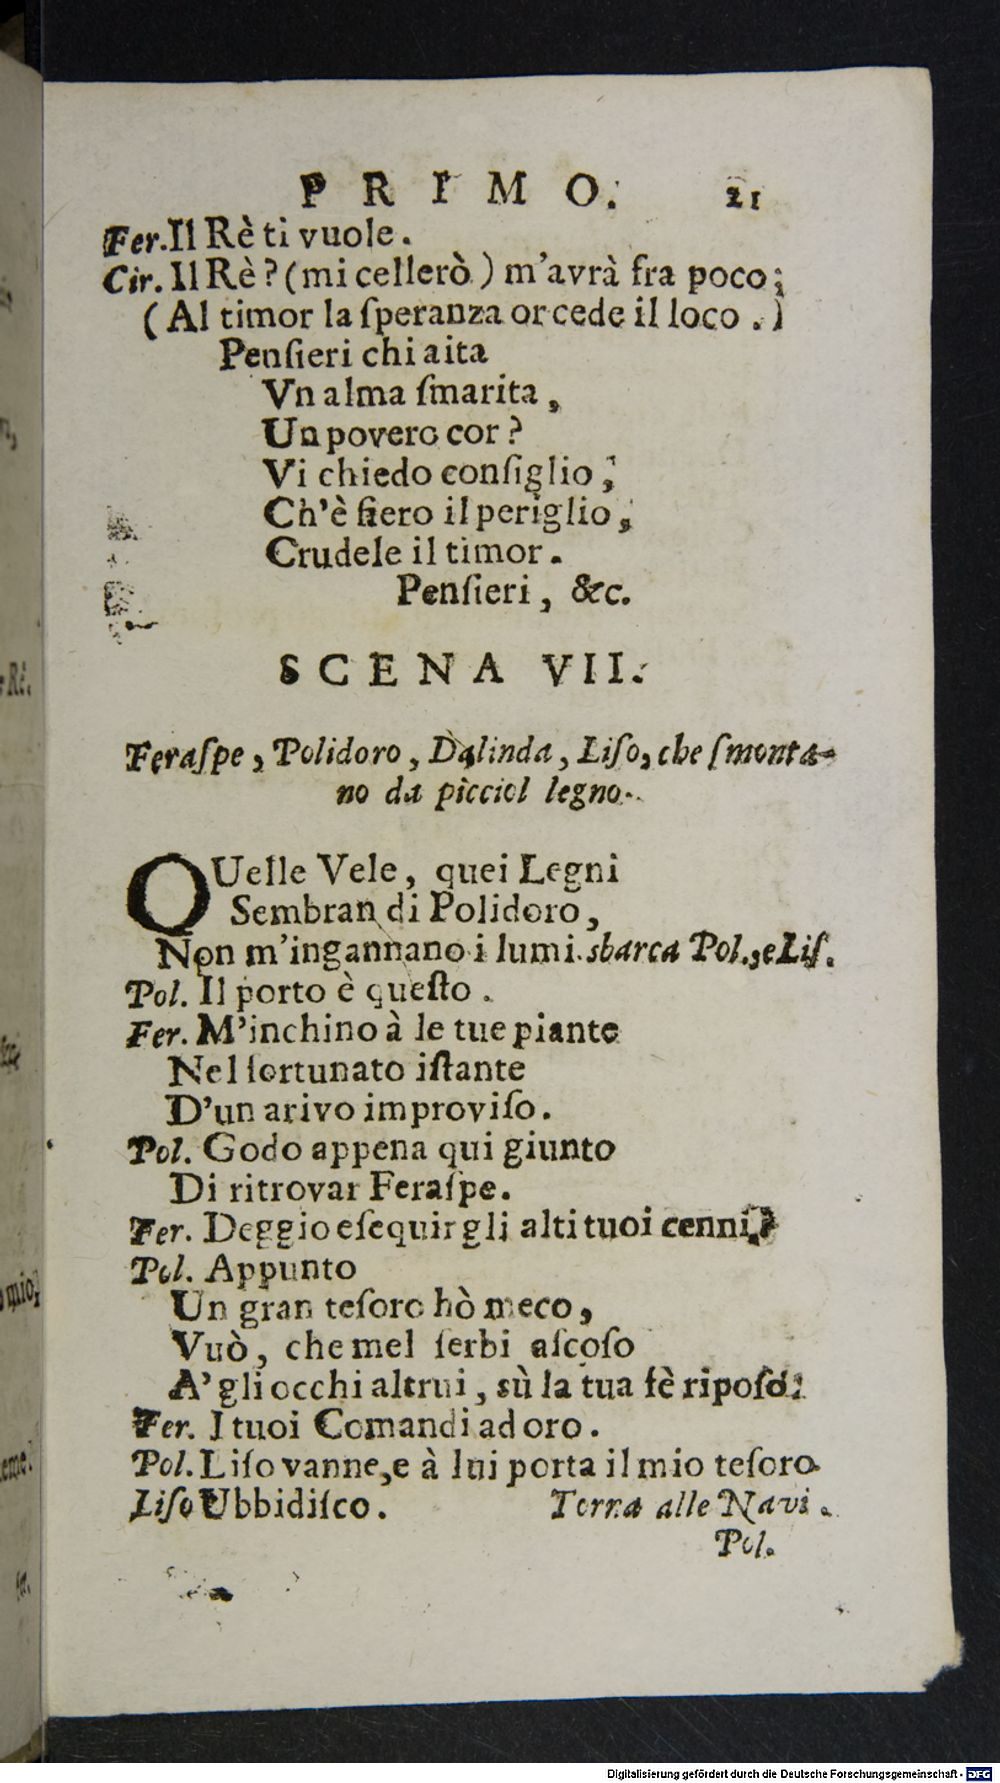 PRIMO. 21
Fer. Il Rè ti vuole.
Cir. Il Rè? (mi cellerò) m'avrà fra poco;
(Al timor la ſperanza or cede il loco.)
Penſieri chi aita
Vn alma ſmarita,
Un povero cor?
Vi chiedo conſiglio,
Ch'è fiero il periglio,
Crudele il timor.
Penſieri, &c.
SCENA VII.
Feraſpe, Polidoro, Dalinda, Liſo, che ſmonta-
no da picciol legno.
QUelle Vele, quei Legni
Sembran di Polidoro,
Non m'ingannano i lumi. sbarca Pol., e Liſ.
Pol. Il porto è queſto.
Fer. M'inchino à le tue piante
Nel fortunato iſtante
D'un arivo improviſo.
Pol. Godo appena qui giunto
Di ritrovar Feraſpe.
Fer. Deggio eſequir gli alti tuoi cenni?
Pol. Appunto
Un gran teſoro hò meco,
Vuò, che mel ſerbi aſcoſo
A' gli occhi altrui, sù la tua fè ripoſo.
Fer. I tuoi Comandi adoro.
Pol. Liſo vanne, e à lui porta il mio teſoro
Liſo Ubbidiſco. Torna alle Navi.
Pol.
Digitalisierung gefördert durch die Deutsche Forschungsgemeinschaft - DFG